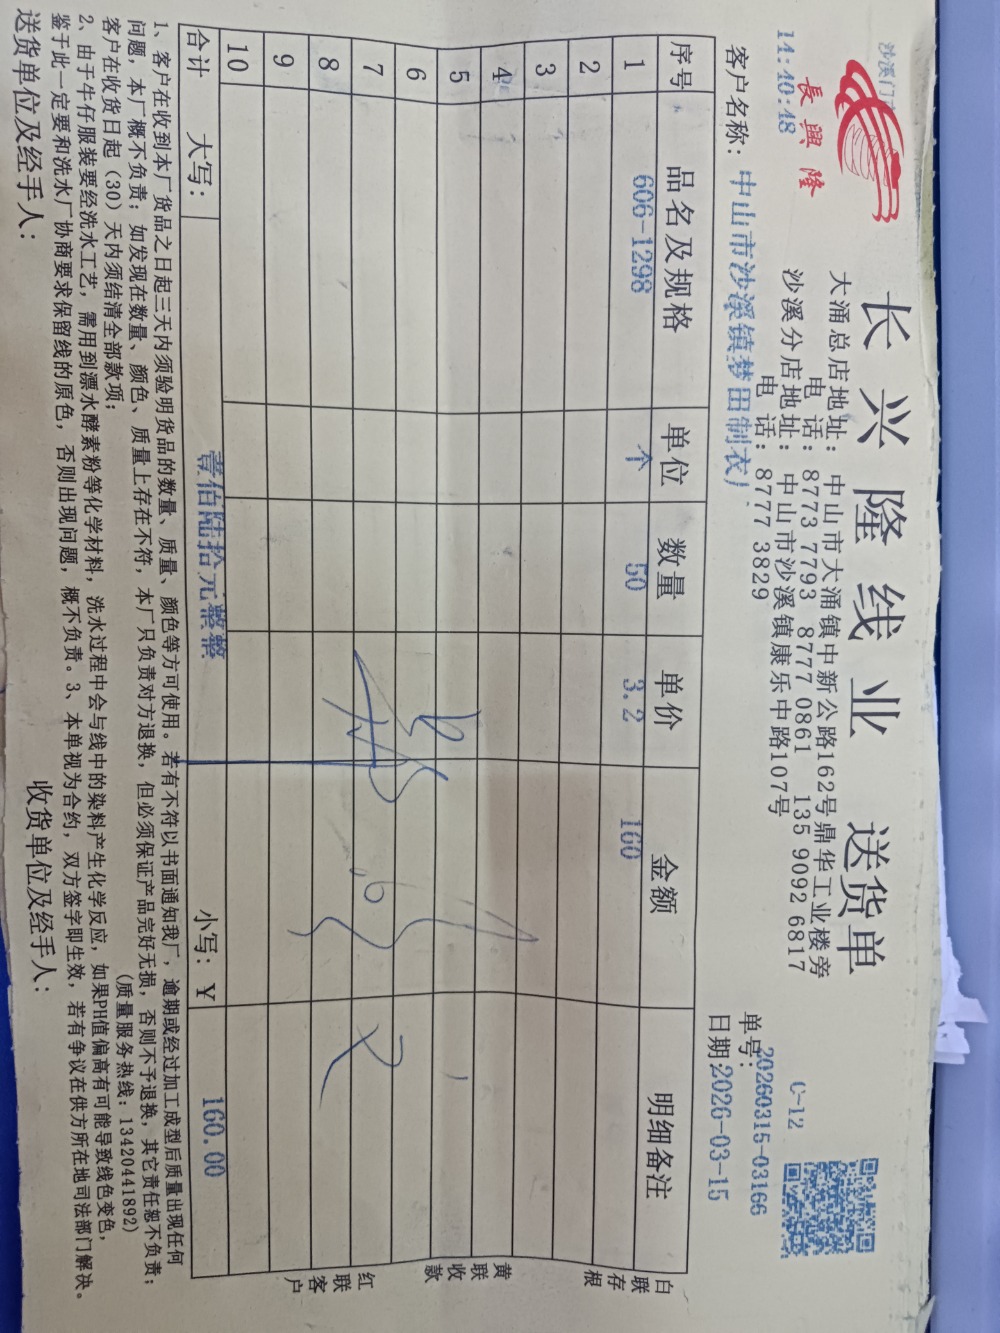 沙溪门
14:40:48
長興隆
长兴隆线业 送货单
大涌总店地址：中山市大涌镇中新公路162号鼎华工业楼旁
电 话：8773 7793 8777 0861 135 9092 6817
沙溪分店地址：中山市沙溪镇康乐中路107号
电 话：8777 3829
C-12
单号：20260315-03166
客户名称：中山市沙溪镇梦田制衣厂
日期：2026-03-15
序号 品名及规格 单位 数量 单价 金额 明细备注
1 606-1298 个 50 3.2 160
2
3
4
5
6
7
8
9
10
合计 大写：壹佰陆拾元整整 小写：￥ 160.00
白联存根
黄联收款
红联客户
1、客户在收到本厂货品之日起三天内须验明货品的数量、质量、颜色等方可使用。若有不符以书面通知我厂，逾期或经过加工成型后质量出现任何
问题，本厂概不负责；如发现在数量、颜色、质量上存在不符，本厂只负责对方退换，但必须保证产品完好无损，否则不予退换，其它责任恕不负责；
客户在收货日起（30）天内须结清全部款项；（质量服务热线：13420441892）
2、由于牛仔服装要经洗水工艺，需用到漂水酵素粉等化学材料，洗水过程中会与线中的染料产生化学反应，如果PH值偏高有可能导致线色变色，
鉴于此一定要和洗水厂协商要求保留线的原色，否则出现问题，概不负责。3、本单视为合约，双方签字即生效，若有争议在供方所在地司法部门解决。
送货单位及经手人： 收货单位及经手人：